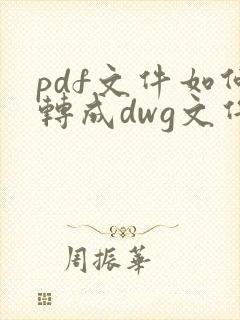 pdf文件如何
轉成dwg文件
周振華